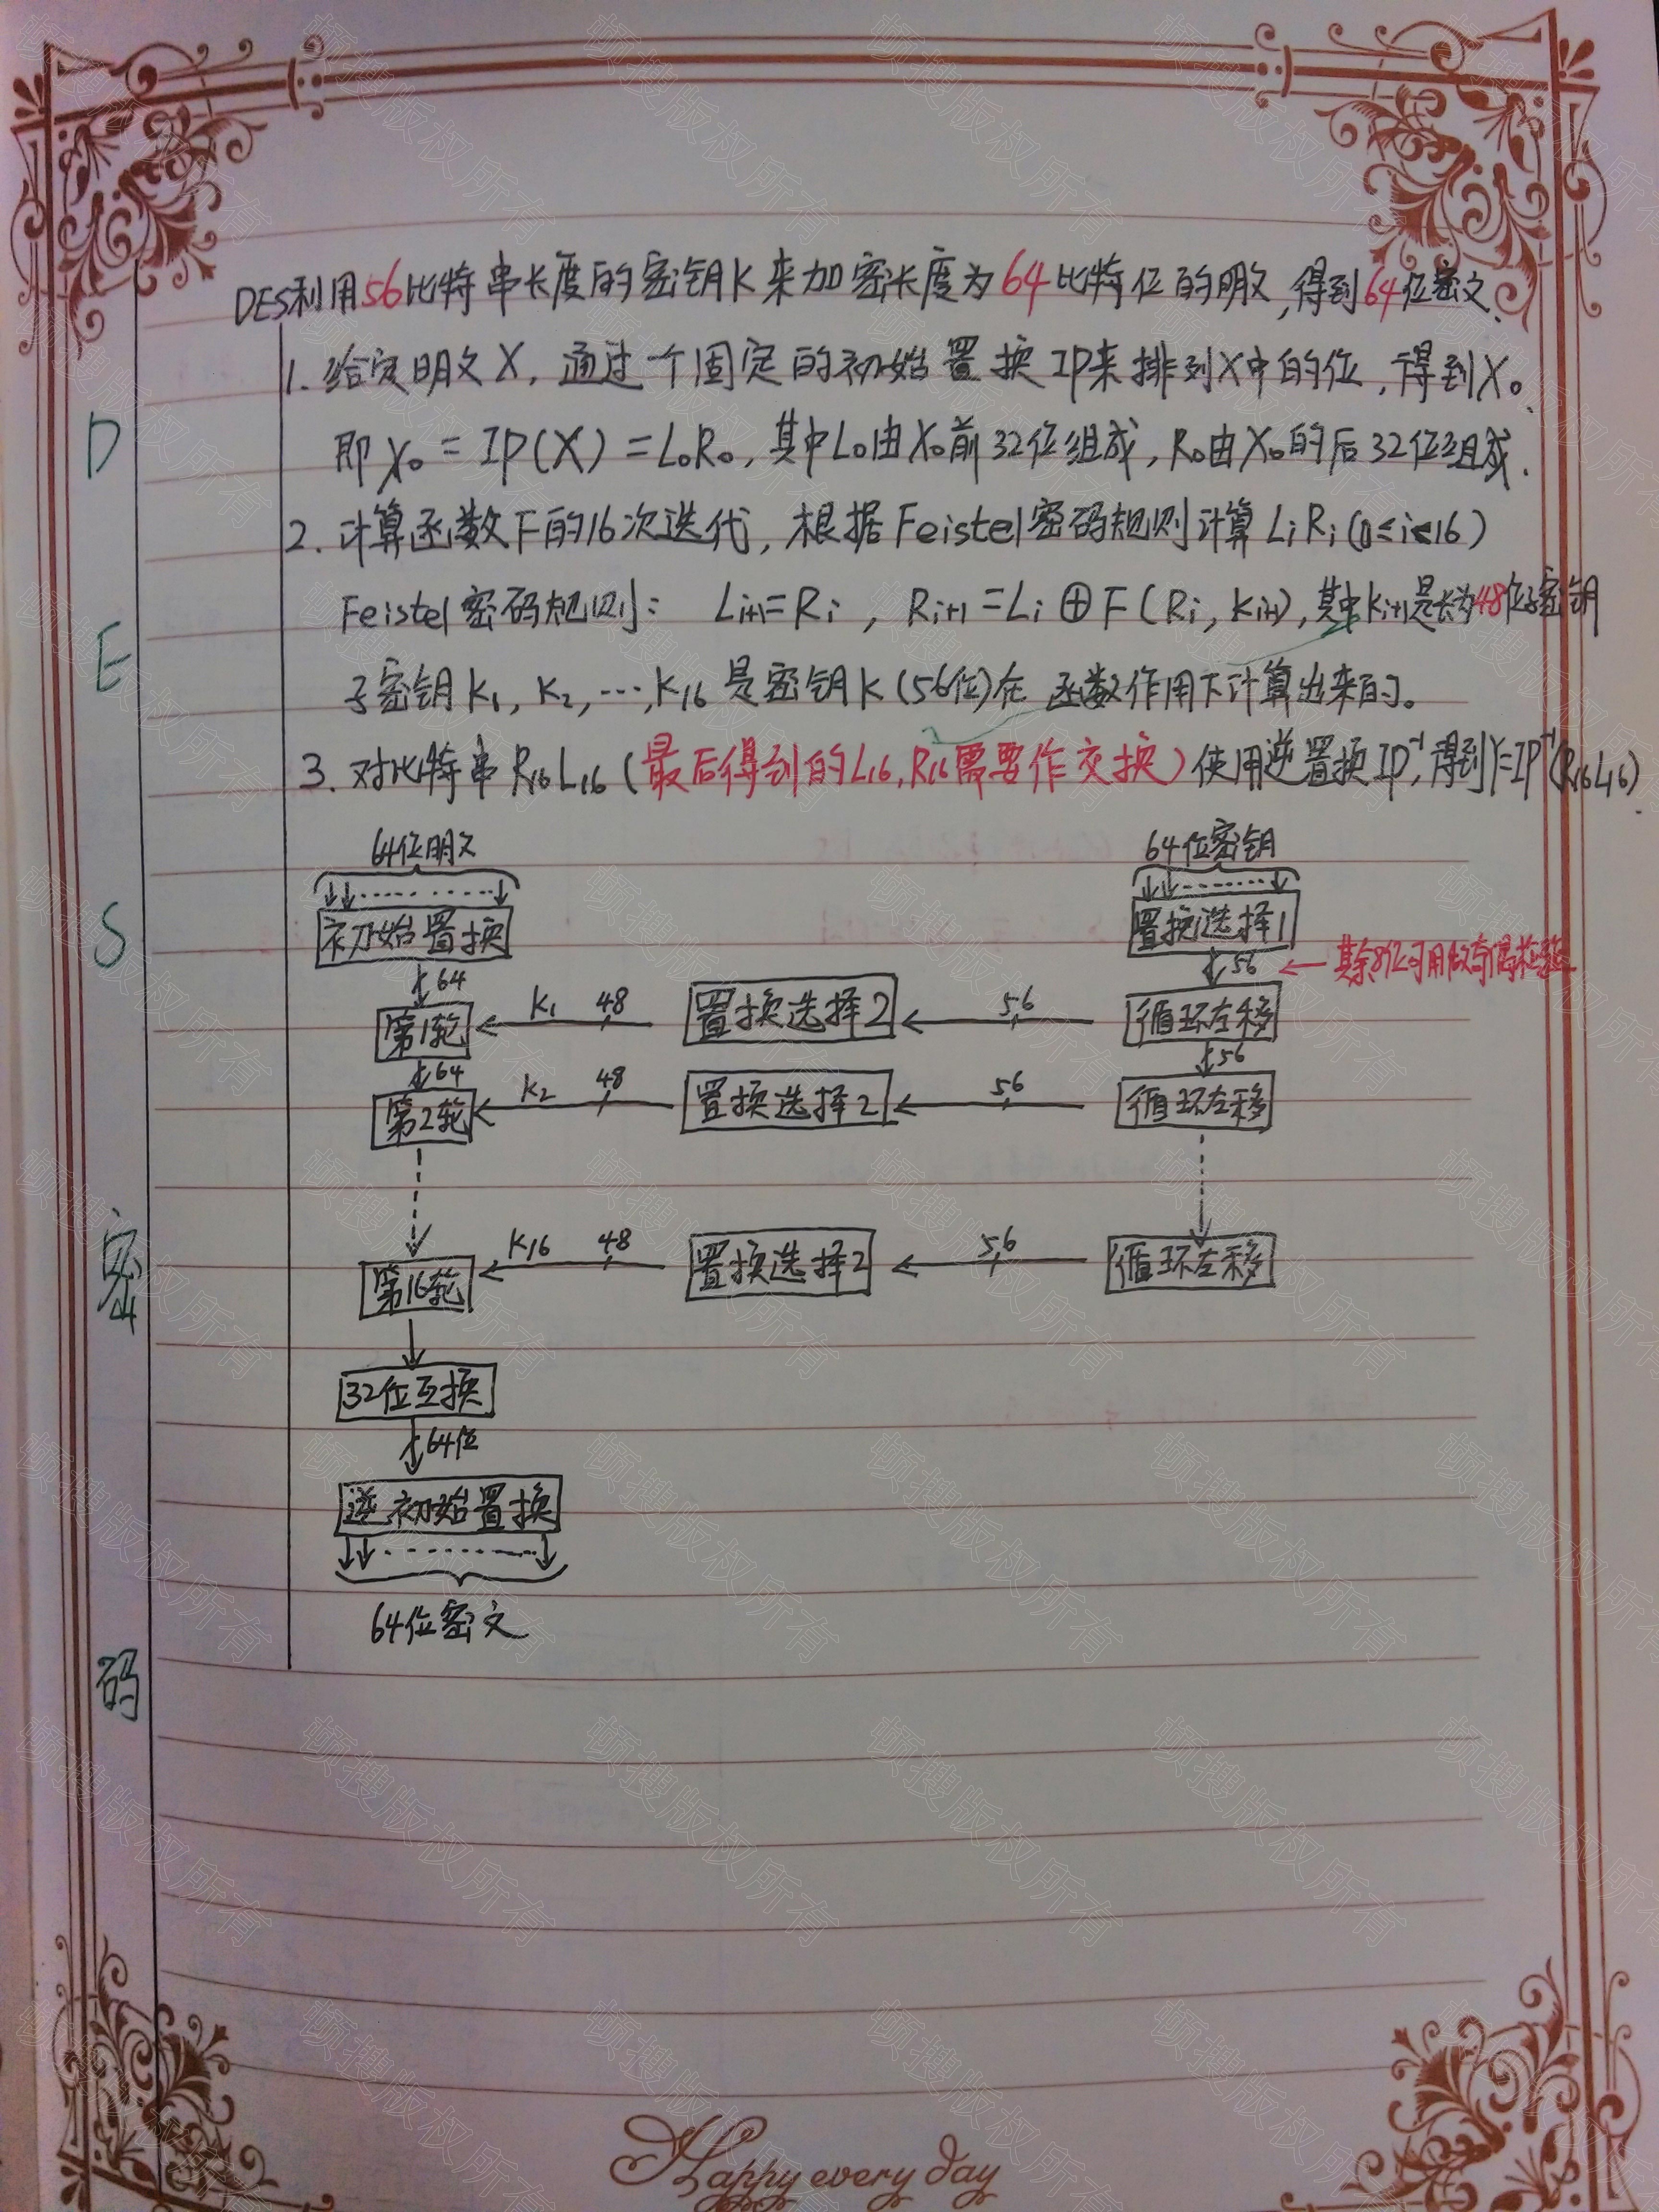 DES密码
DES利用56比特串长度的密钥K来加密长度为64比特位的明文,得到64位密文.
1. 给定明文X, 通过一个固定的初始置换IP来排列X中的位, 得到X₀.
即 X₀ = IP(X) = L₀R₀, 其中L₀由X₀前32位组成, R₀由X₀的后32位组成.
2. 计算函数F的16次迭代, 根据Feistel密码规则计算 LᵢRᵢ (0≤i≤16)
Feistel密码规则: Lᵢ₊₁=Rᵢ , Rᵢ₊₁ =Lᵢ ⊕ F(Rᵢ, Kᵢ₊₁), 其中Kᵢ₊₁是长为48位子密钥
子密钥 K₁, K₂, …, K₁₆ 是密钥K (56位)在 函数作用下计算出来的。
3. 对比特串 R₁₆L₁₆ (最后得到的L₁₆, R₁₆需要作交换) 使用逆置换IP⁻¹, 得到Y=IP⁻¹(R₁₆L₁₆).
64位明文 64位密钥
初始置换 置换选择1
64 56 ← 其余8位可用做奇偶校验
第1轮 K₁ 48 置换选择2 56 循环左移
64 56
第2轮 K₂ 48 置换选择2 56 循环左移
第16轮 K16 48 置换选择2 56 循环左移
32位互换
64位
逆初始置换
64位密文
Happy every day
顿搜版权所有